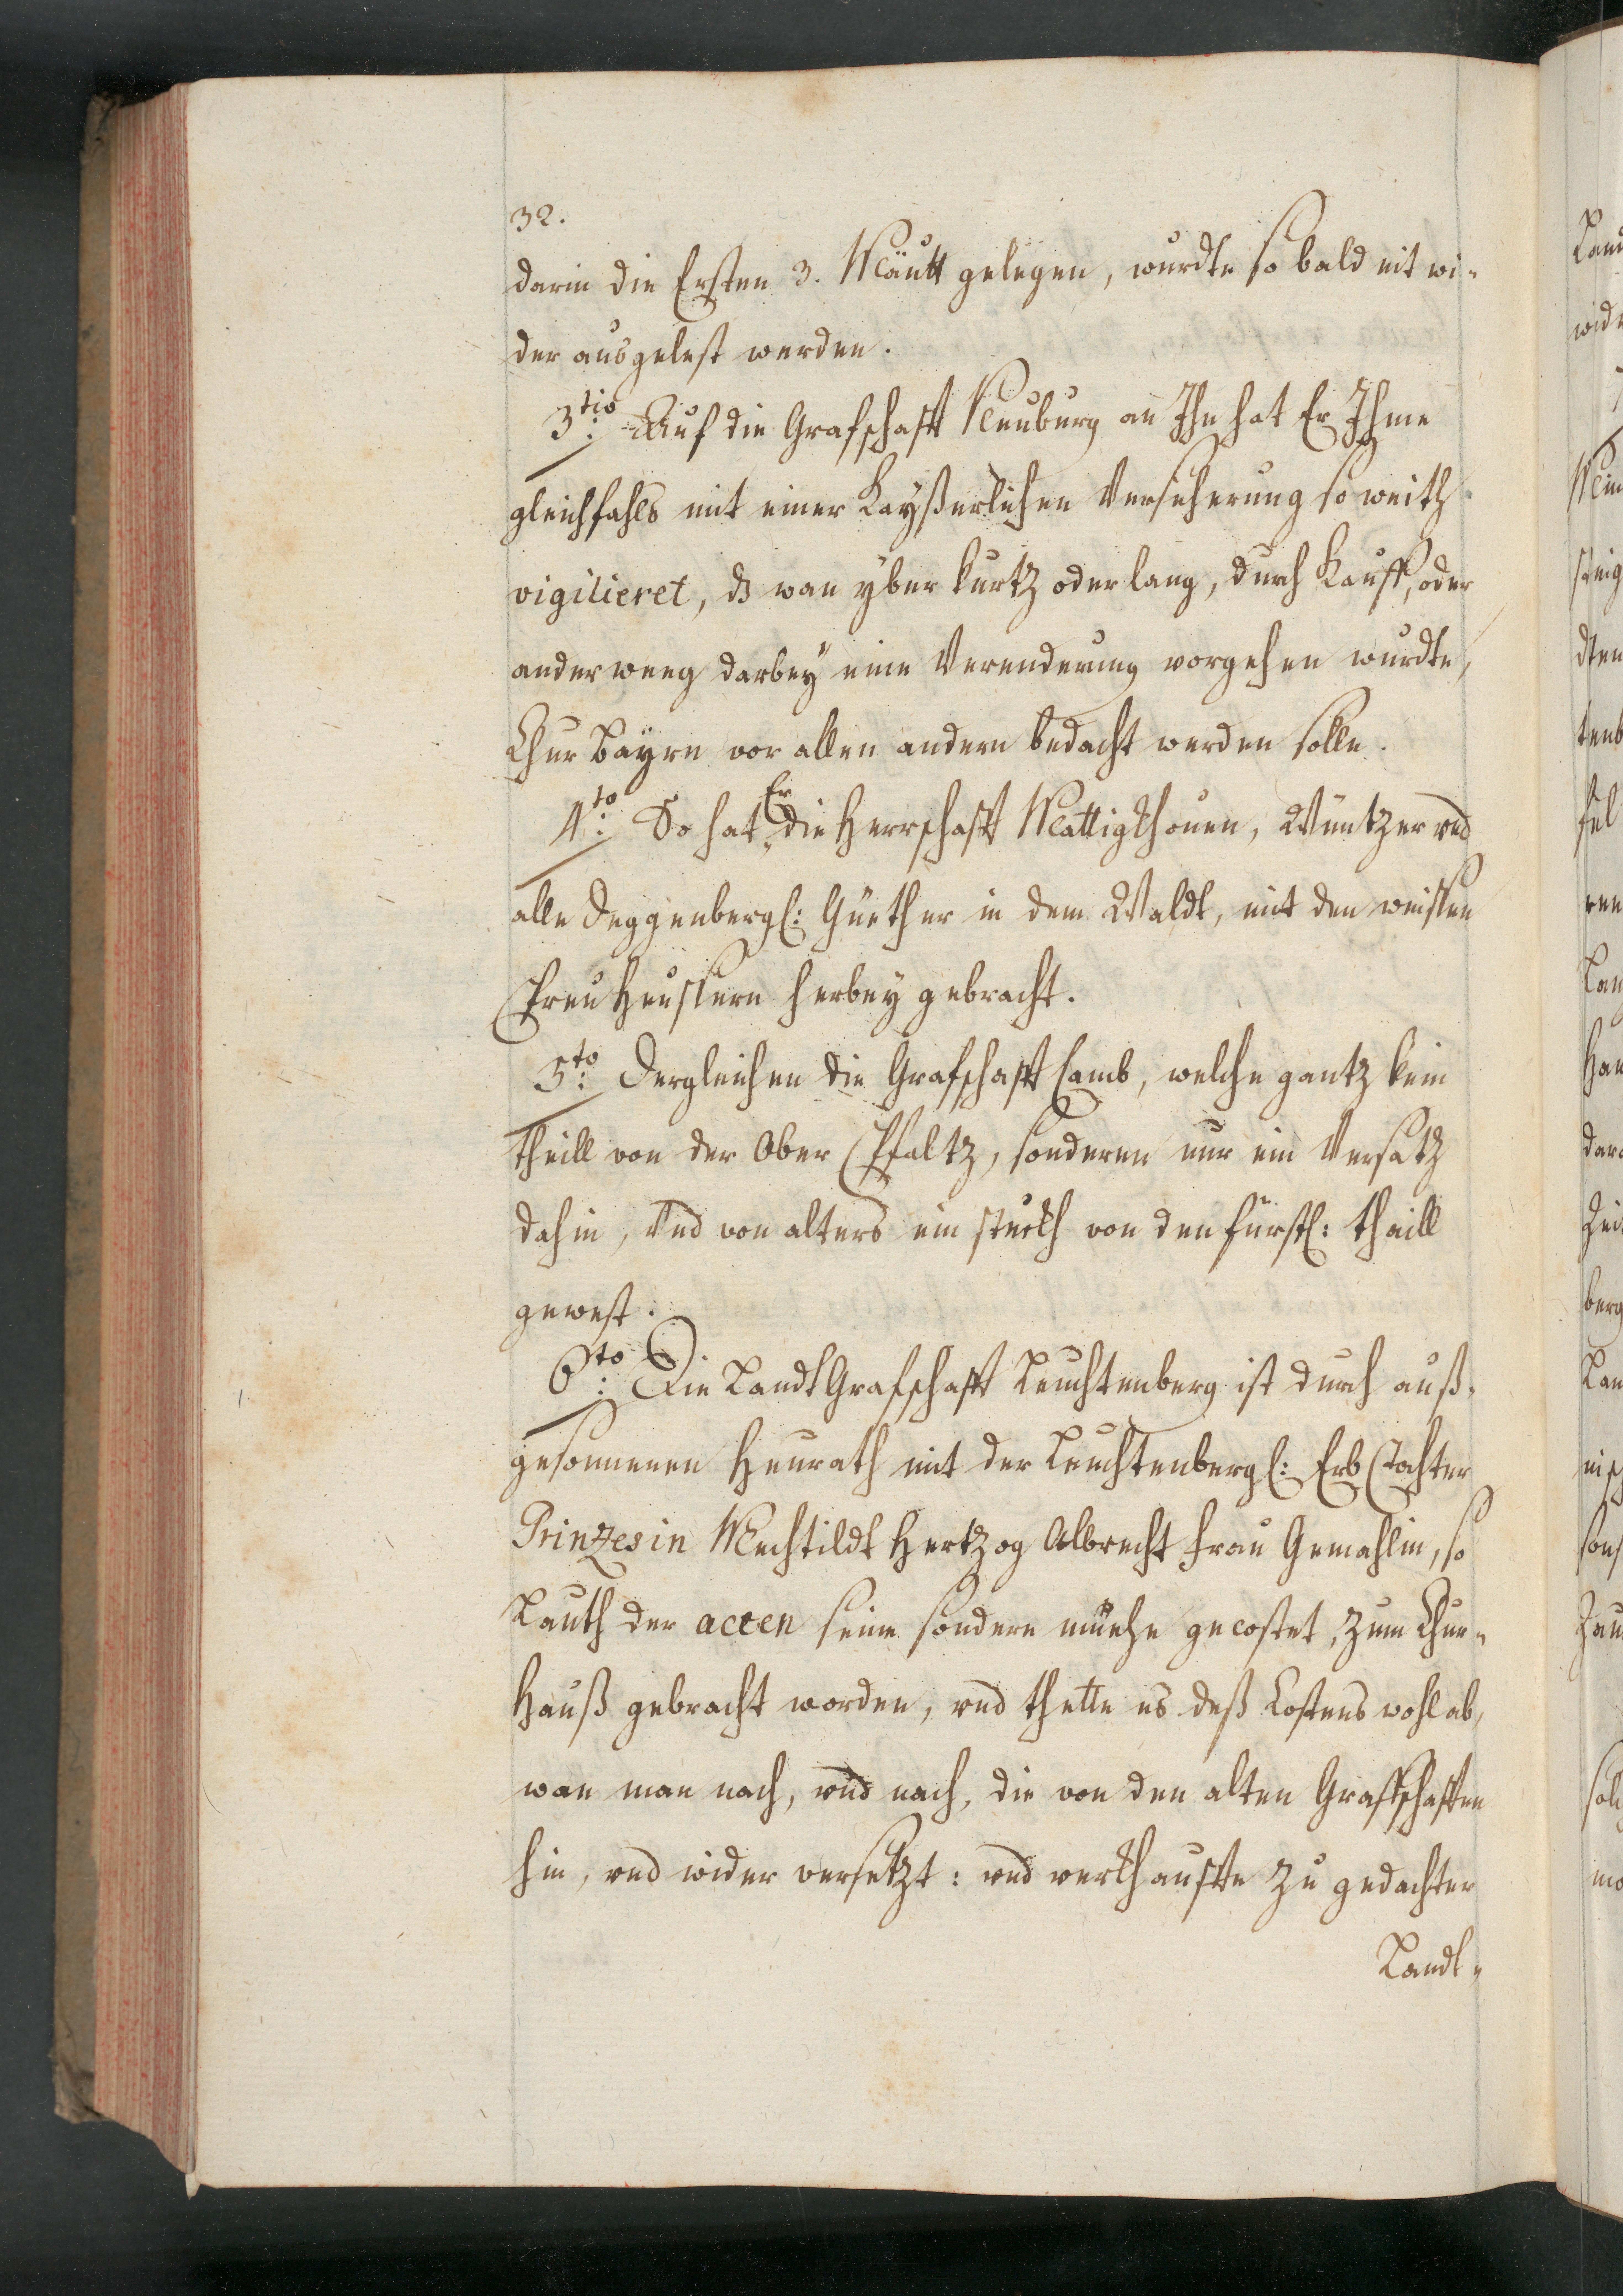 32.
darin die Ersten 3. Mäutt gelegen, wurdte so bald nit wi-
der ausgelest werden.
3tio: Auf die Grafschafft Neuburg an Ihn hat Er Ihme
gleichfahls mit einer Kayßerlichen Versicherung so weith
vigilieret, ds wan yber kurtz oder lang, durch Kauff, oder
anderweeg darbey eine Verenderung vorgehen wurdte,
Chur Bayrn vor allen andern bedacht werden solle.
4to: So hat Er die Herrschafft Mattigkhouen, Wüntzer vnd
alle Deggenbergl: Güether in dem Waldt, mit den weissen
Preuheussern herbey gebracht.
5to: Dergleichen die Grafschafft Camb, welche gantz kein
theill von der Ober Pfaltz, sonderen nur ein Versatz
dahin, Vnd von alters ein stuckh von den fürstl: theill
gewest.
6to: Die LandtGrafschafft Leuchtenberg ist durch auß-
gesonnenen Heurath mit der Leuchtenbergl: Erb Tochter
Prinzesin Mechtildt Hertzog Albrecht Frau Gemahlin, so
Lauth der acten seine sondere müehe gecostet, zum Chur-
Hauß gebracht worden, vnd thette es deß Costens wohl ab,
wan man nach, vnd nach, die von den alten Graffschafften
hin, vnd wider versetzt: vnd verkhauffte zu gedachter
Landt-